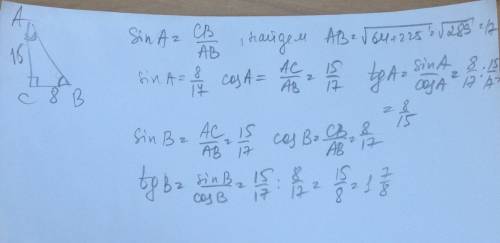 A
15
C 8 B
sin A = CB/AB, найдем AB = √64+225 = √289 = 17
sin A = 8/17 cos A = AC/AB = 15/17 tg A = sin A/cos A = 8/17 : 15/17
= 8/15
sin B = AC/AB = 15/17 cos B = CB/AB = 8/17
tg B = sin B/cos B = 15/17 : 8/17 = 15/8 = 1 7/8